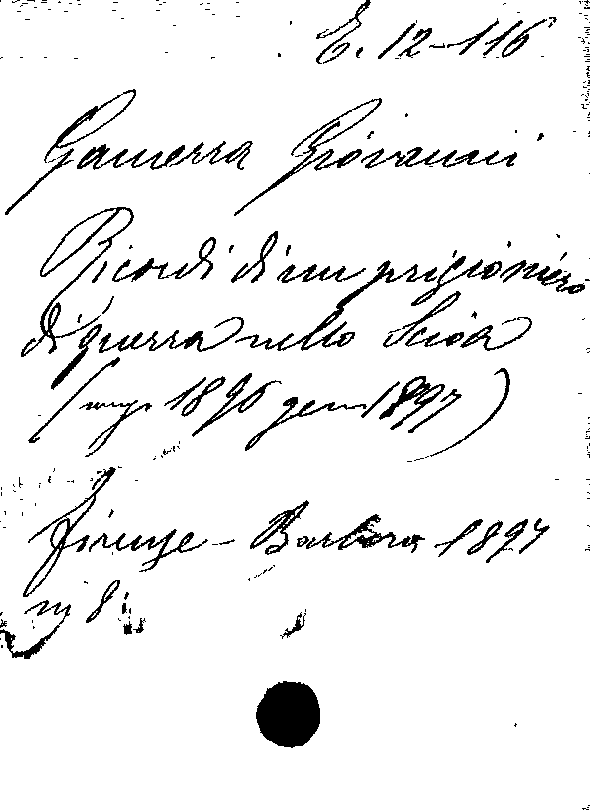 E. 12-116
Gamerra Giovanni
Ricordi di un prigioniero
di guerra nello Scioa
(marzo 1896 genn 1897)
Firenze - Barbera 1897
in 8.